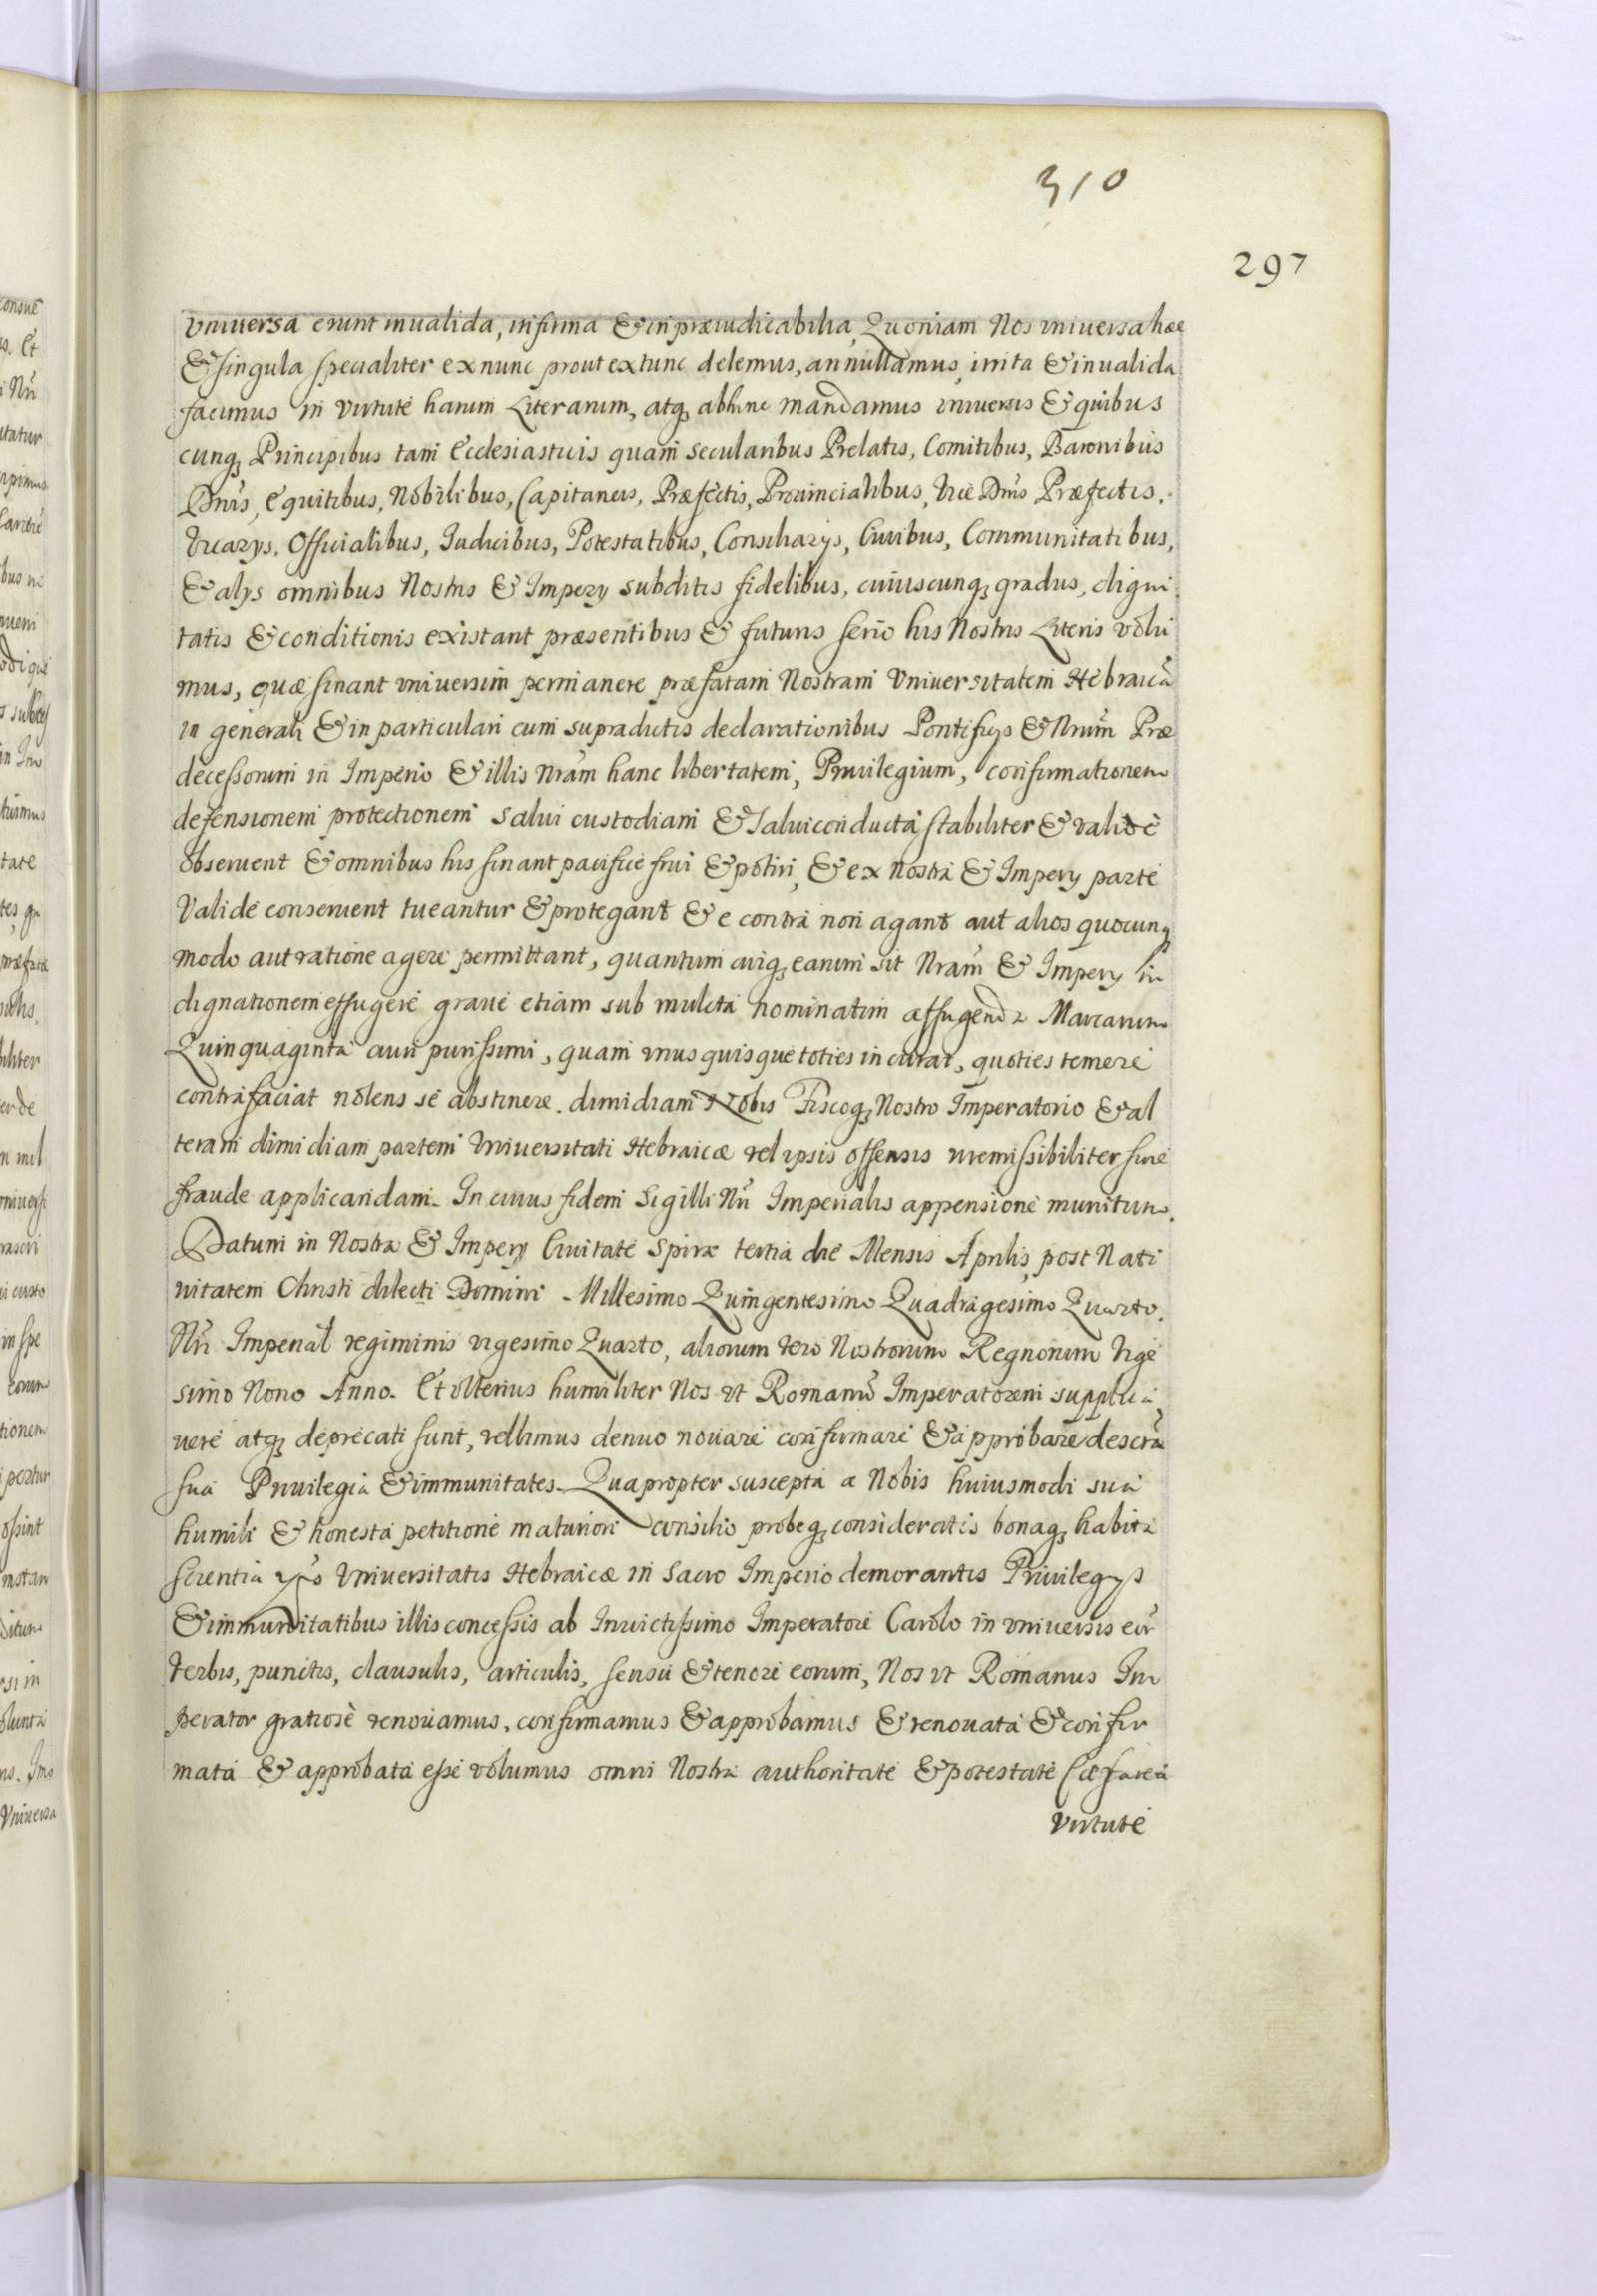 310
297
vniuersa erunt inualida, infirma & inpræiudicabilia, Quoniam Nos vniuersa hæc
& singula specialiter ex nunc prout ex tunc delemus, annullamus, irrita & inualida
facimus in virtute harum Literarum, atq; abhinc mandamus vniuersis & quibus
cunq; Principibus tam Ecclesiasticis quam Secularibus Prelatis, Comitibus, Baronibus
Dnis, Equitibus, Nobilibus, Capitaneis, Præfectis, Prouincialibus, Vice Dnis Præfectis,
Vicarys, Officialibus, Iudicibus, Potestatibus, Consiliarys, Ciuibus, Communitatibus,
& alys omnibus Nostris & Impery subditis fidelibus, cuiuscunq; gradus, digni
tatis & conditionis existant præsentibus & futuris serio his Nostris Literis volu
mus, quæ sinant vniuersim permanere præfatam Nostram Vniuersitatem Hebraicã
in generali & in particulari cum supradictis declarationibus Pontificys & Nrũm Præ
decessorum in Imperio & illis Nrãm hanc libertatem, Priuilegium, confirmationem
defensionem protectionem salui custodiam & Saluiconducta stabiliter & validè
obseruent & omnibus his sinant pacifice frui & potiri, & ex Nostra & Impery parte
Valide conseruent tueantur & protegant & e contra non agant aut alios quocunq;
modo aut ratione agere permittant, quantum cuiq; earum sit Nrãm & Impery in
dignationem effugere graue etiam sub mulcta nominatim æffugenda Marcarum
Quinquaginta auri purissimi, quam vnusquisque toties incurat, quoties temere
contrafaciat nolens se abstinere. dimidiam Nobis Fiscoq; Nostro Imperatorio & al
teram dimidiam partem Vniuersitati Hebraicæ vel ipsis offensis irremissibiliter sine
fraude applicandam. In cuius fidem Sigilli Nri Imperialis appensione munitum.
Datum in Nostra & Impery Ciuitate Spiræ tertia die Mensis Aprilis, post Nati
uitatem Christi dilecti Domini Millesimo Quingentesimo Quadragesimo Quarto.
Nri Imperial regiminis vigesimo Quarto, aliorum vero Nostrorum Regnorum Vige
simo Nono Anno. Et vlterius humiliter Nos vt Romanũ Imperatorem supplica
uere atq; deprecati sunt, vellimus denuo nouare confirmare & approbare descrã
sua Priuilegia & immunitates. Quapropter suscepta a Nobis huiusmodi sua
humili & honesta petitione maturiori consilio probeq; consideratis bonaq; habita
scientia Vniuersitatis Hebraicæ in Sacro Imperio demorantis Priuilegys
& immunitatibus illis concessis ab Inuictissimo Imperatore Carolo in vniuersis eor̃
Verbis, punctis, clausulis, articulis, sensu & tenore eorum, Nos vt Romanus Im
perator gratiosè renouamus, confirmamus & approbamus & renouata & confir
mata & approbata esse volumus omni Nostra authoritate & potestate Cæsarea
Virtute